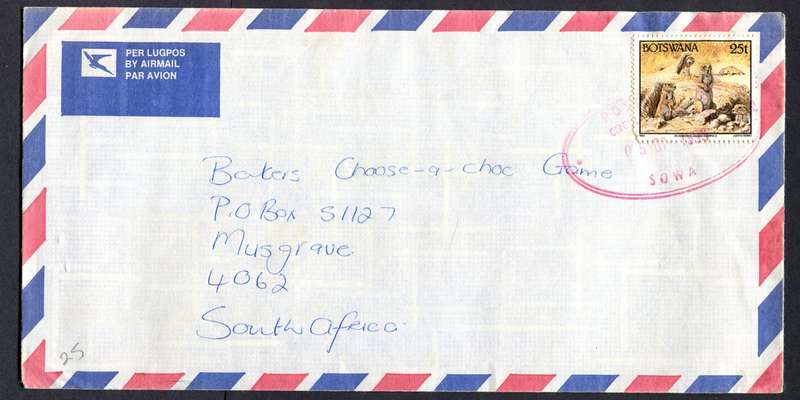 PER LUGPOS
BY AIRMAIL
PAR AVION
BOTSWANA 25t
SOWA
Bakers Choose-a-choc Game
P.O Box 51127
Musgrave
4062
South Africa
25